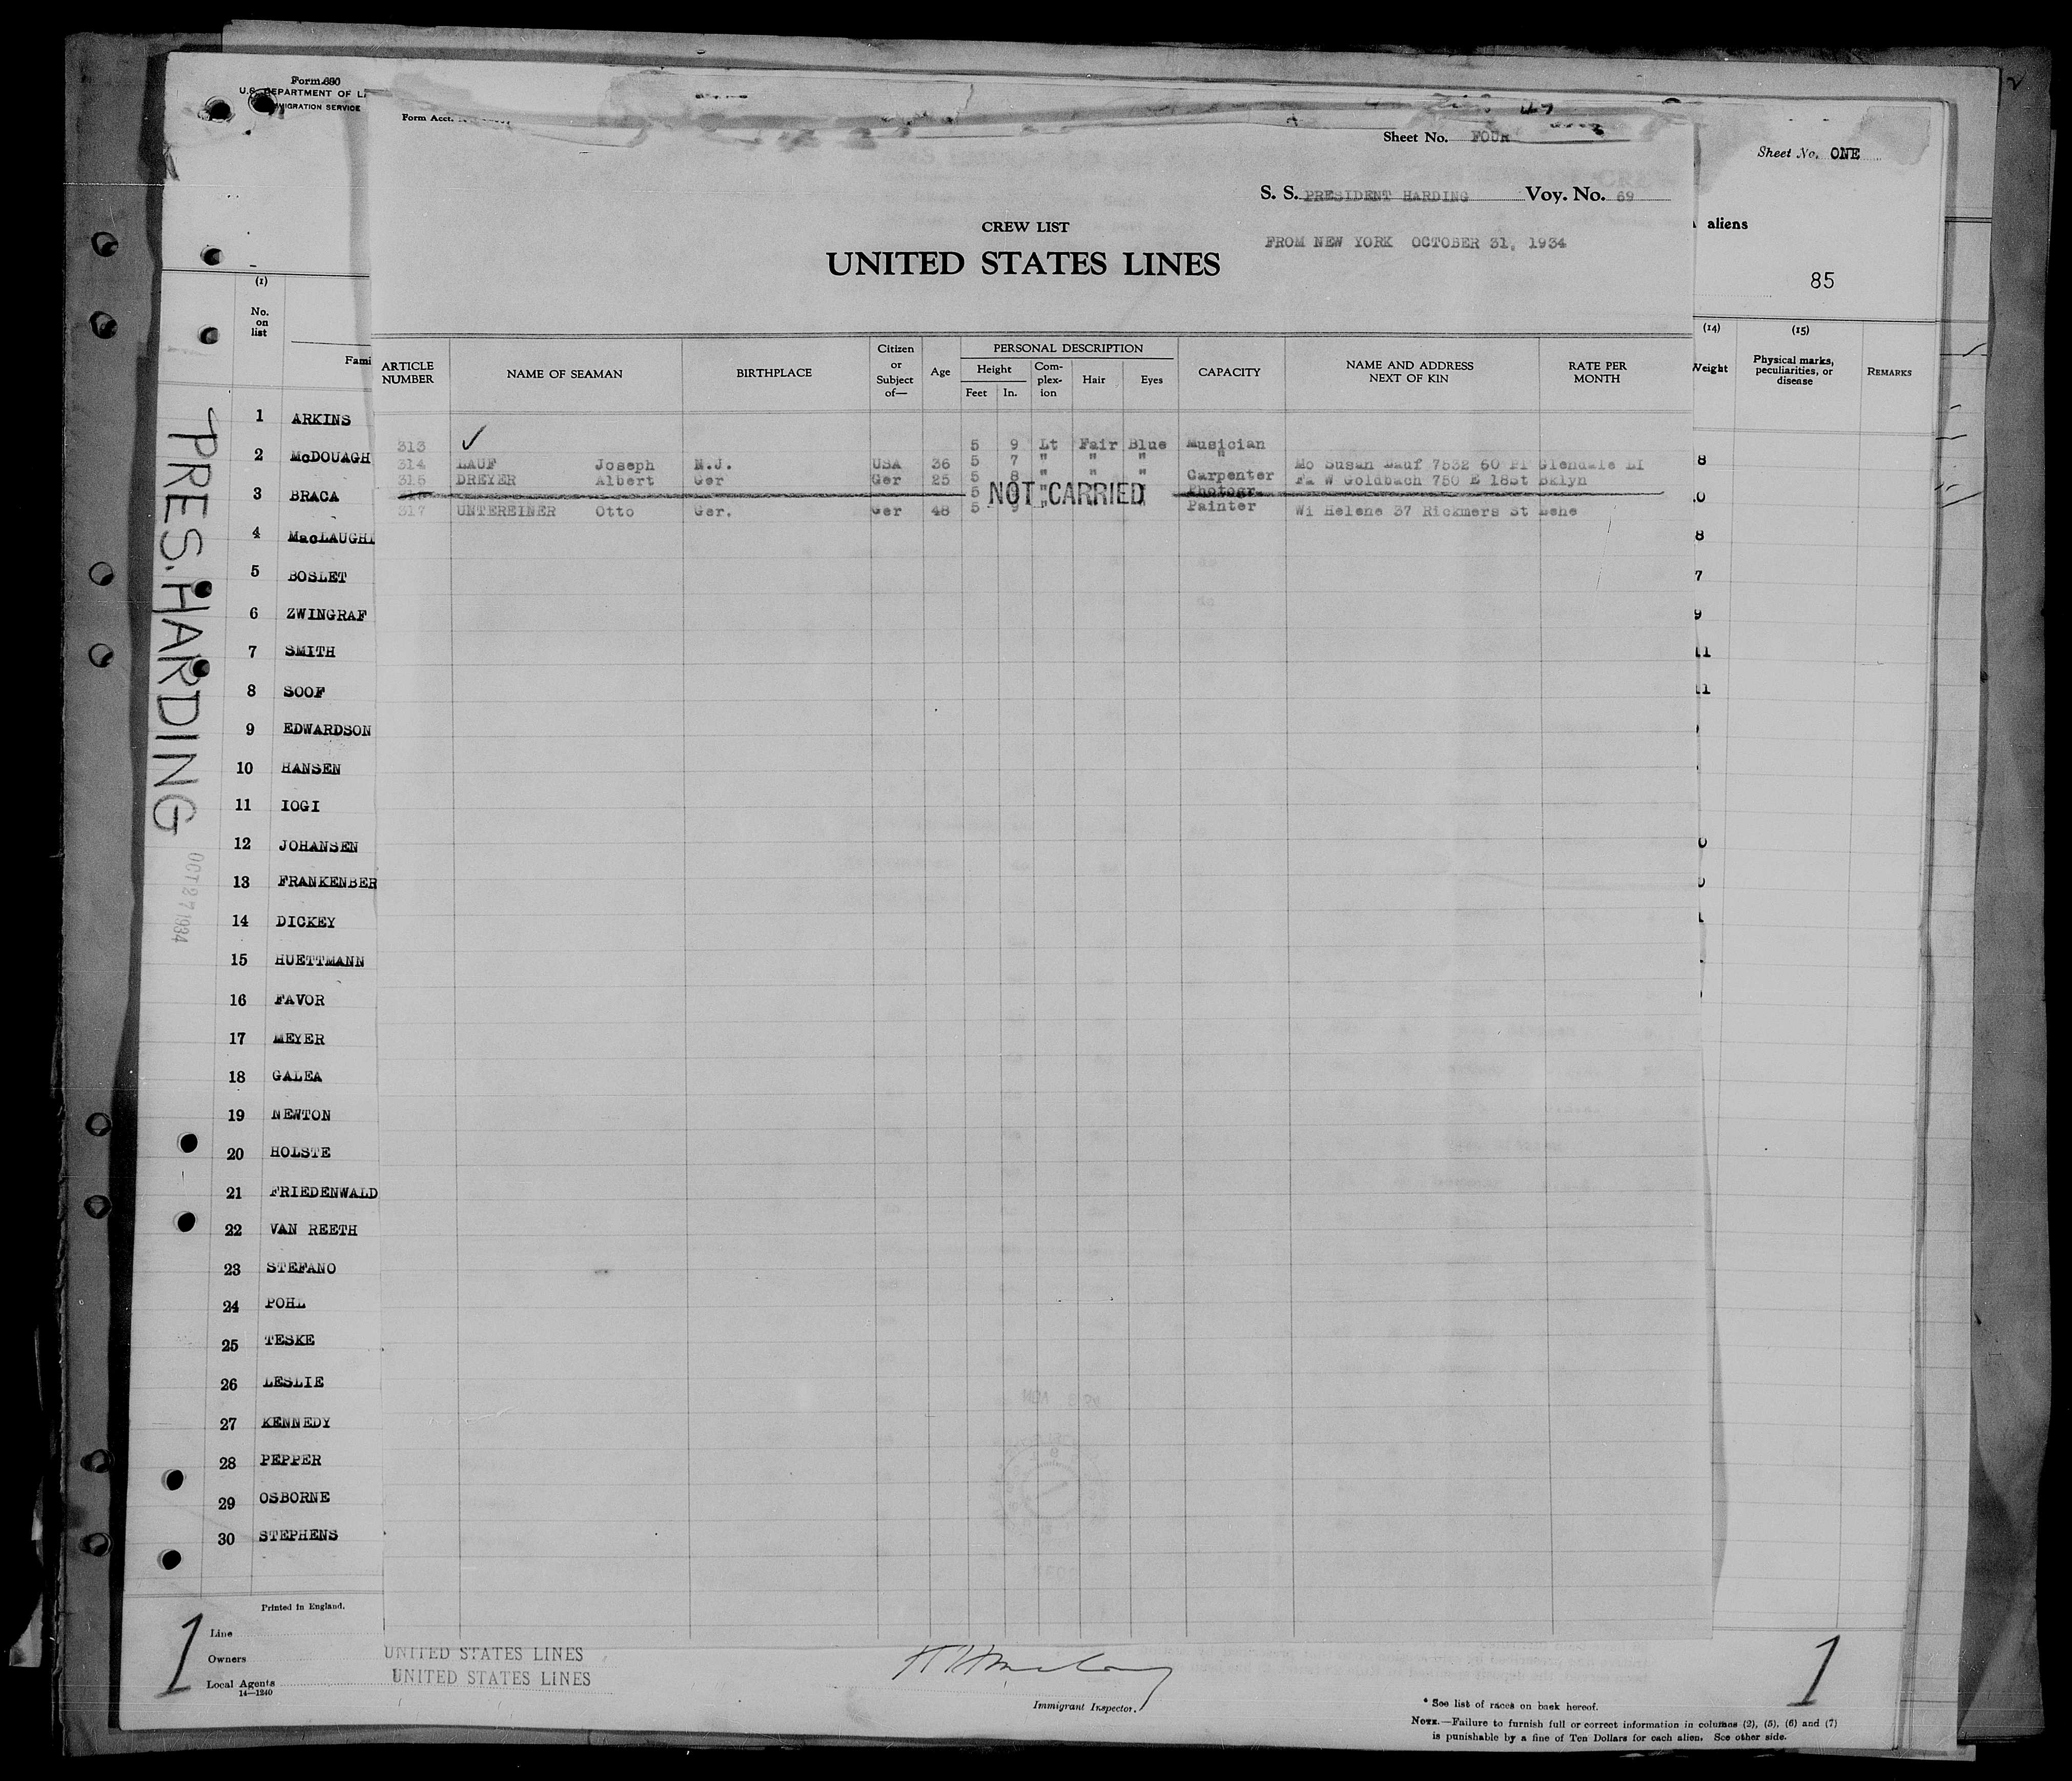 Form 680
U.S. DEPARTMENT OF
IMMIGRATION SERVICE
Form Acct.
Sheet No. FOUR
Sheet No. ONE
S. S. PRESIDENT HARDING Voy. No. 69
aliens
CREW LIST
FROM NEW YORK OCTOBER 31, 1934
UNITED STATES LINES
85
(1)
No. on list
Fami
ARTICLE NUMBER
NAME OF SEAMAN
BIRTHPLACE
Citizen or Subject of—
Age
PERSONAL DESCRIPTION
Height
Feet
In.
Complexion
Hair
Eyes
CAPACITY
NAME AND ADDRESS NEXT OF KIN
RATE PER MONTH
(14)
Weight
(15)
Physical marks, peculiarities, or disease
REMARKS
313 ✓ 5 9 Lt Fair Blue Musician
314 LAUF Joseph N.J. USA 36 5 7 " " " " Mo Susan Lauf 7532 60 Pl Glendale LI
315 DREYER Albert Ger Ger 25 5 8 " " " Carpenter Fa W Goldbach 750 E 18St Bklyn
5 NOT CARRIED Photogr
317 UNTEREINER Otto Ger. Ger 48 5 9 " " " Painter Wi Helene 37 Rickmers St Lehe
1 ARKINS
2 McDOUAGH
3 BRACA
4 MacLAUGHL
5 BOSLET
6 ZWINGRAF
7 SMITH
8 SOOF
9 EDWARDSON
10 HANSEN
11 IOGI
12 JOHANSEN
13 FRANKENBER
14 DICKEY
15 HUETTMANN
16 FAVOR
17 MEYER
18 GALEA
19 NEWTON
20 HOLSTE
21 FRIEDENWALD
22 VAN REETH
23 STEFANO
24 POHL
25 TESKE
26 LESLIE
27 KENNEDY
28 PEPPER
29 OSBORNE
30 STEPHENS
8
0
8
7
9
11
11
PRES. HARDING
OCT 27 1934
Printed in England.
1
Line
Owners
Local Agents
14—1240
UNITED STATES LINES
UNITED STATES LINES
Immigrant Inspector.
1
* See list of races on back hereof.
NOTE.—Failure to furnish full or correct information in columns (2), (5), (6) and (7)
is punishable by a fine of Ten Dollars for each alien. See other side.